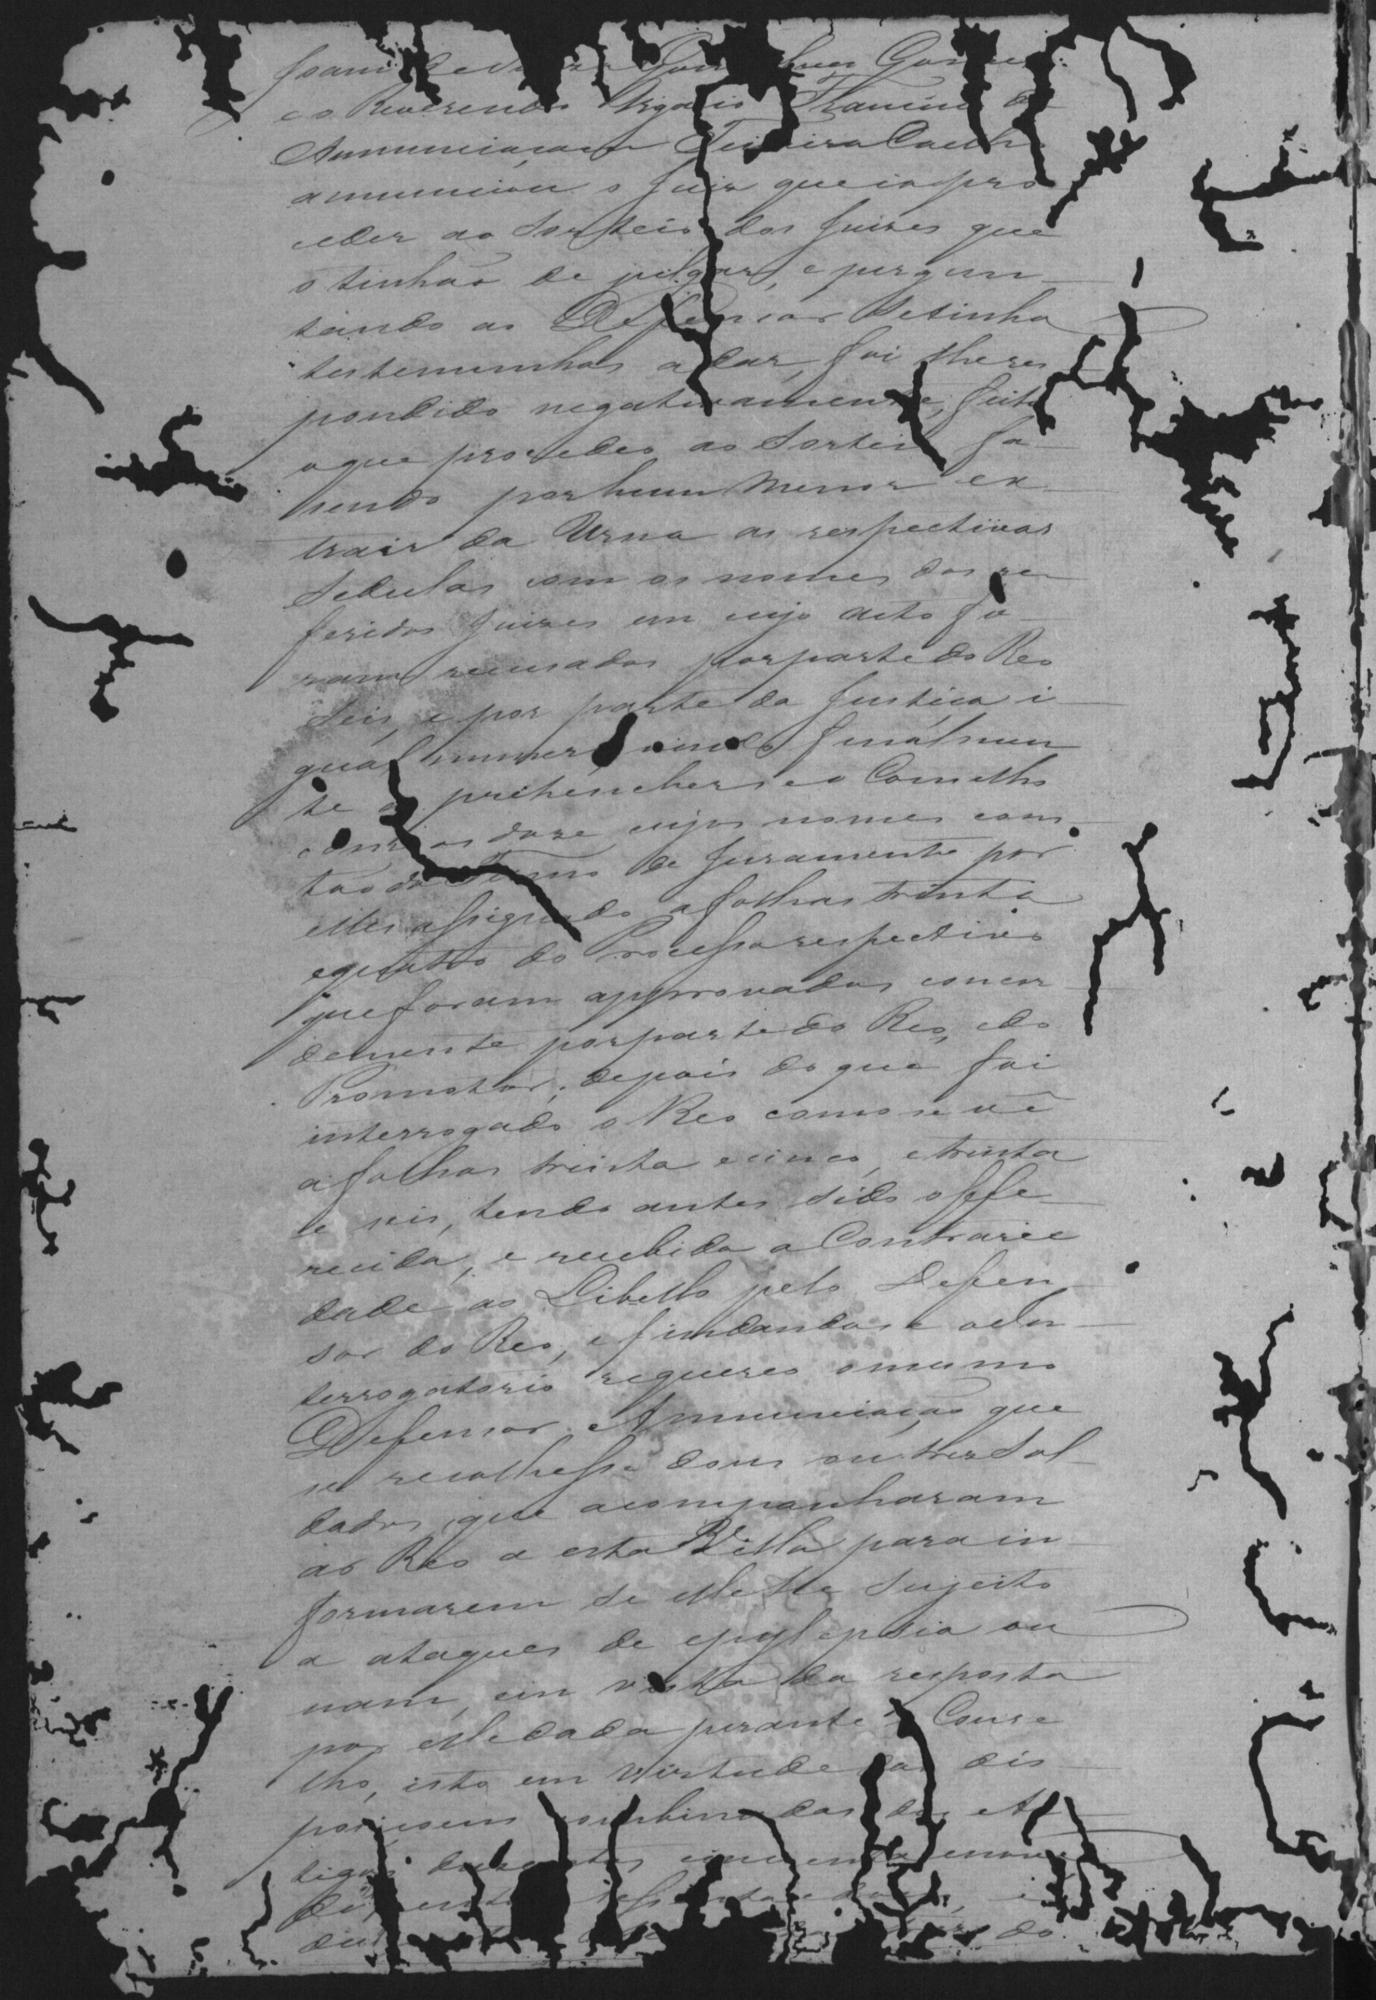 e o Reverendo Vigario
Annunciaçaon Teixeira Coelho
annunciou o Juiz que ia pro
ceder ao Sorteio dos Juizes que
o tinhão de julgar, e pergun
tando ao Defensor se tinha
testemunhas a dar, foi lhe res
pondido negativamente, feito
o que procedeo ao Sorteio fa
sendo por hum Menor ex
trair da Urna as respectivas
Sedulas com os nomes dos re
feridos Juizes em cujo acto fo
ram recusados por parte do Reo
seis, e por parte da Justiça i
gual numero, vindo finalmen
te a prehencherse o Conselho
com os doze cujos nomes cons
tão do Termo de Juramento por
elles assignado a folhas trinta
e quatro do Processo respectivo
que foram approvados concor
demente por parte do Reo, e do
Promotor; depois do que foi
interrogado o Reo como se vê
a folhas trinta e cinco, e trinta
e seis, tendo antes sido offe
recida, e recebida a Contrarie
dade ao Libello pelo Defen
sor do Reo, e findandose o In
terrogatorio requereo o mesmo
Defensor Annunciação que
se recolhesse dous ou tres Sol
dados que acompanharam
ao Reo a esta Villa para in
formarem se elle he sujeito
a ataques de epylepsia ou
nam, em vista da resposta
por elle dada perante o Conse
lho, isto em virtude das dis
posiçoens combinadas dos Ar
tigos duzentos cincoenta e nove